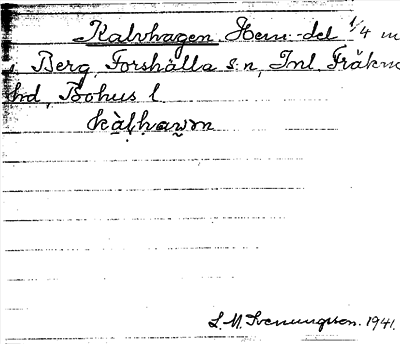 Kalvhagen, Hem.-del 1/4 m
i Berg, Forshälla s:n, Inl. Fräkne
hd, Bohus l
L. M. Svenungsson. 1941.